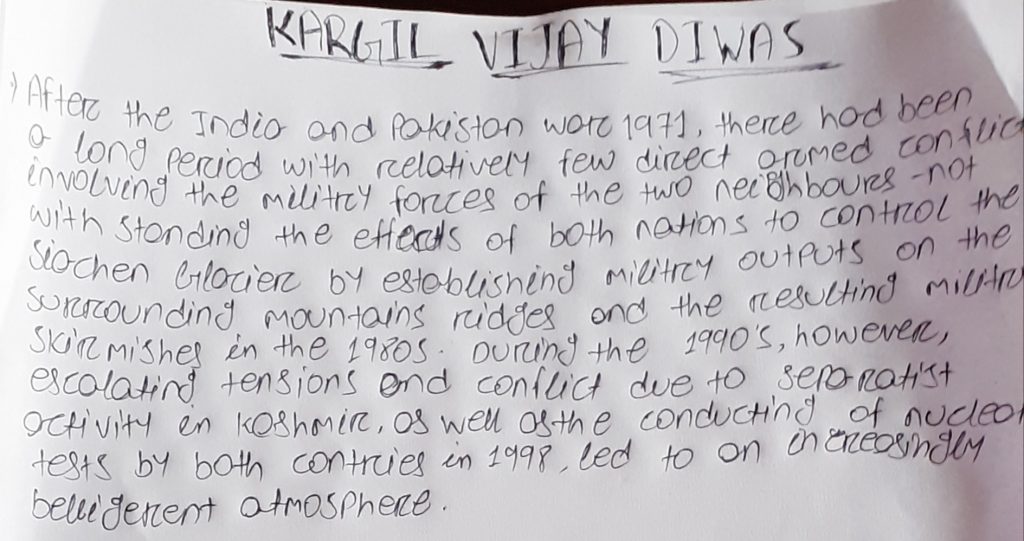 KARGIL VIJAY DIWAS
After the India and Pakistan war 1971, there had been
a long period with relatively few direct armed conflic
involving the militry forces of the two neighbours - not
with standing the effects of both nations to control the
Siachen Glacier by establishing militry outputs on the
surrounding mountains ridges and the resulting militry
skirmishes in the 1980s. During the 1990's, however,
escalating tensions and conflict due to separatist
activity in Kashmir, as well as the conducting of nuclear
tests by both contries in 1998, led to an increasingly
belligerent atmosphere.